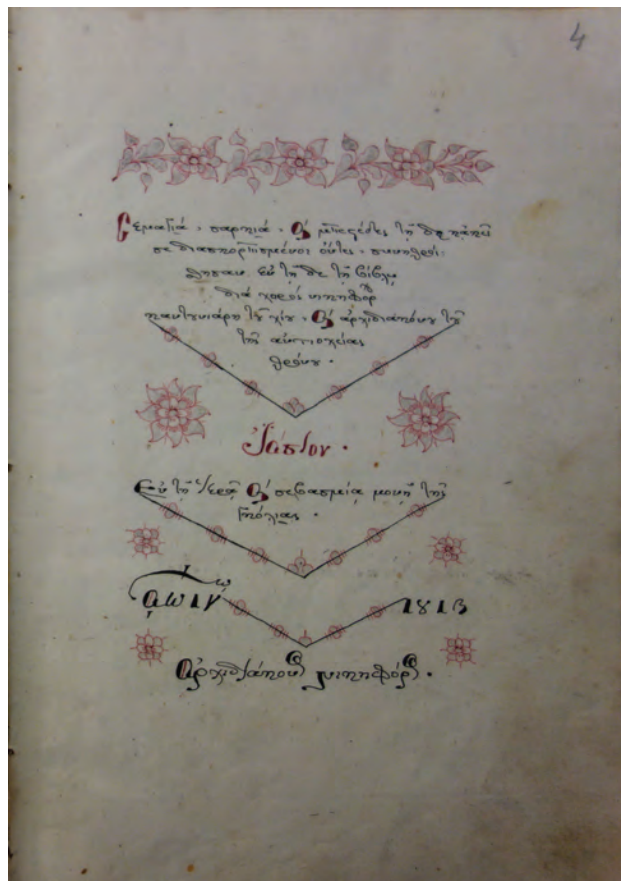 4
Σεμαγιά, σαρκιά, καὶ μπεστέδες τῇ δε κἀκεῖ
σε διασκορπισμένοι ὄντες, συνηθροί-
σθησαν ἐν τῇ δε τῇ βίβλῳ
διὰ χειρὸς νικηφόρου
καντουνιάρη τοῦ χίου, καὶ ἀρχιδιακόνου τοῦ
τῆς ἀντιοχείας
θρόνου.
Ἰάσιον.
Ἐν τῇ ἱερᾷ καὶ σεβασμίᾳ μονῇ τῆς
Γκόλιας.
͵αωιγῳ 1813
Ἀρχιδιάκονος νικηφόρος.